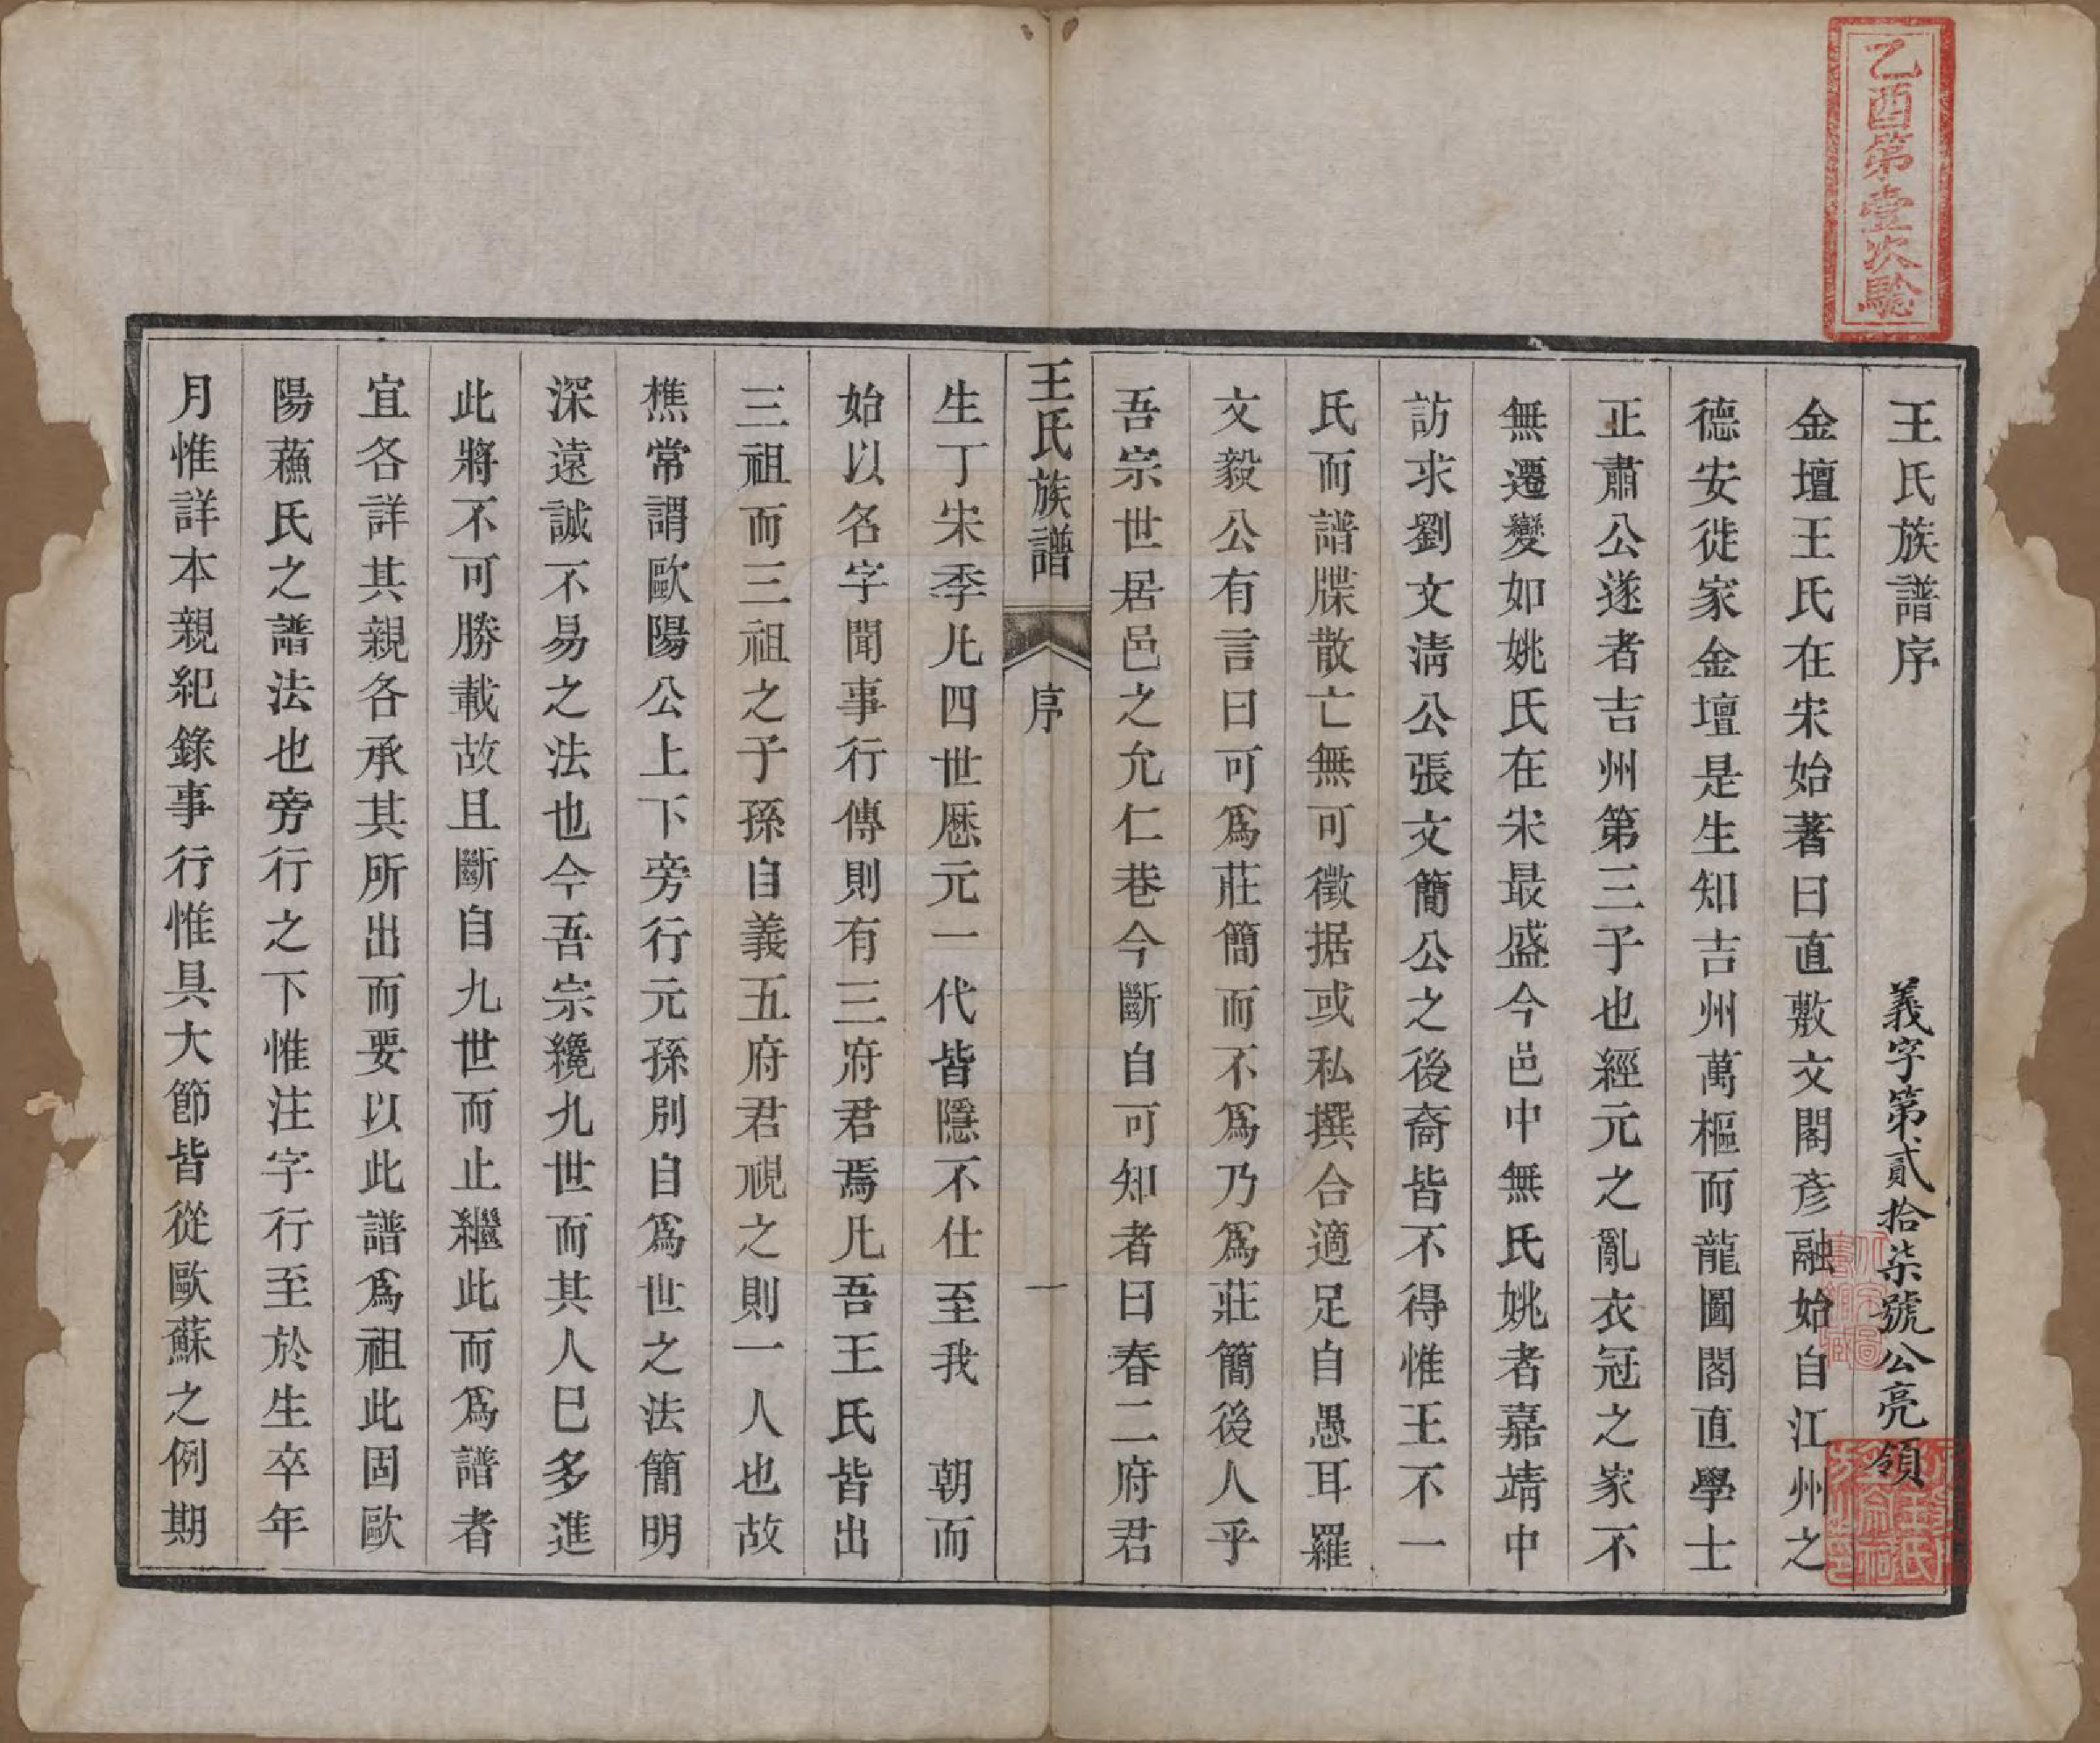 乙酉第壹次驗
王氏族譜序
義字第貳拾柒號公亮領
金壇王氏在宋始著曰直敷文閣彥融始自江州之
德安徙家金壇是生知吉州萬樞而龍圖閣直學士
正肅公遂者吉州第三子也經元之亂衣冠之家不
無遷變如姚氏在宋最盛今邑中無氏姚者嘉靖中
訪求劉文清公張文簡公之後裔皆不得惟王不一
氏而譜牒散亡無可徵据或私撰合適足自愚耳羅
文毅公有言曰可爲莊簡而不爲乃爲莊簡後人乎
吾宗世居邑之允仁巷今斷自可知者曰春二府君
王氏族譜 序 一
生丁宋季凡四世歷元一代皆隱不仕至我 朝而
始以名字聞事行傳則有三府君焉凡吾王氏皆出
三祖而三祖之子孫自義五府君視之則一人也故
樵常謂歐陽公上下旁行元孫別自爲世之法簡明
深遠誠不易之法也今吾宗纔九世而其人巳多進
此將不可勝載故且斷自九世而止繼此而爲譜者
宜各詳其親各承其所出而要以此譜爲祖此固歐
陽蘓氏之譜法也旁行之下惟注字行至於生卒年
月惟詳本親紀錄事行惟具大節皆從歐蘇之例期